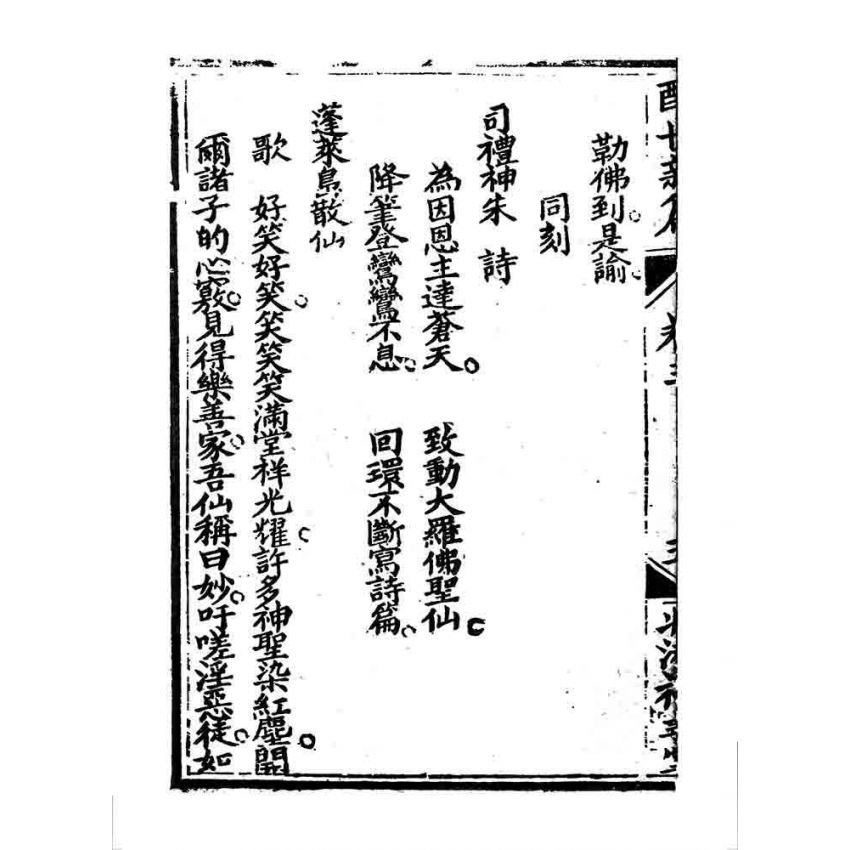 勒佛到。是諭。
同刻
司禮神朱　詩
為因恩主達蒼天。　致動大羅佛聖仙。
降筆登鸞鸞不息。　回環不斷寫詩篇。
蓬萊島散仙
歌　好笑好笑。笑笑笑滿堂祥光耀。許多神聖染紅塵。開
爾諸子的心竅。見得樂善家。吾仙稱曰妙。吁嗟淫惡徒。如